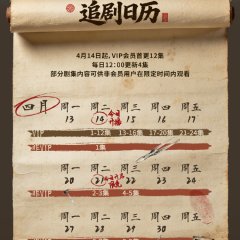 追剧日历
4月14日起，VIP会员首更12集
每日12:00更新4集
部分剧集内容可供非会员用户在限定时间内观看
四月 周一 周二 周三 周四 周五
13 14 15 16 17
VIP 1-12集 13-16集 17-20集 21-24集
非VIP 1集
周一 周二 周三 周四 周五
20 21 22 23 24
非VIP 2-3集 4-5集
周一 周二 周三 周四 周五
27 28 29 30